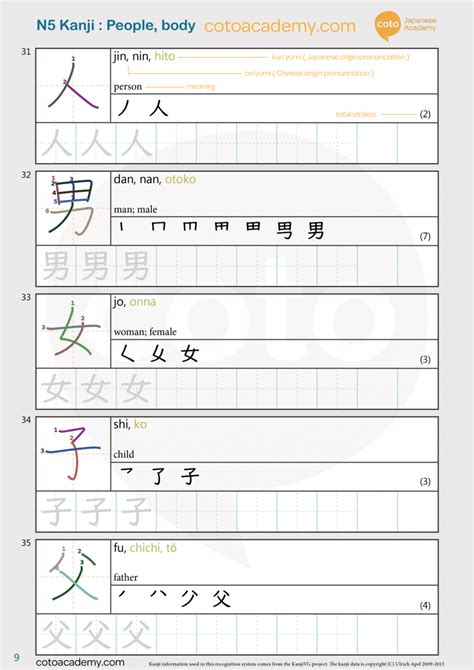 N5 Kanji : People, body cotoacademy.com coto Japanese Academy
31
jin, nin, hito
kun'yomi ( Japanese origin pronunciation )
on'yomi ( Chinese origin pronunciation )
person
meaning
ノ 人
total strokes
(2)
人 人 人 人
32
dan, nan, otoko
man; male
丨 冂 皿 田 甲 男 男
(7)
男 男 男 男
33
jo, onna
woman; female
く 女 女
(3)
女 女 女 女
34
shi, ko
child
乛 了 子
(3)
子 子 子 子
35
fu, chichi, tō
father
ノ 八 父 父
(4)
父 父 父 父
coto
9
cotoacademy.com
Kanji information used in this recognition system comes from the KanjiVG project. The kanji data is copyright (C) Ulrich Apel 2009-2013